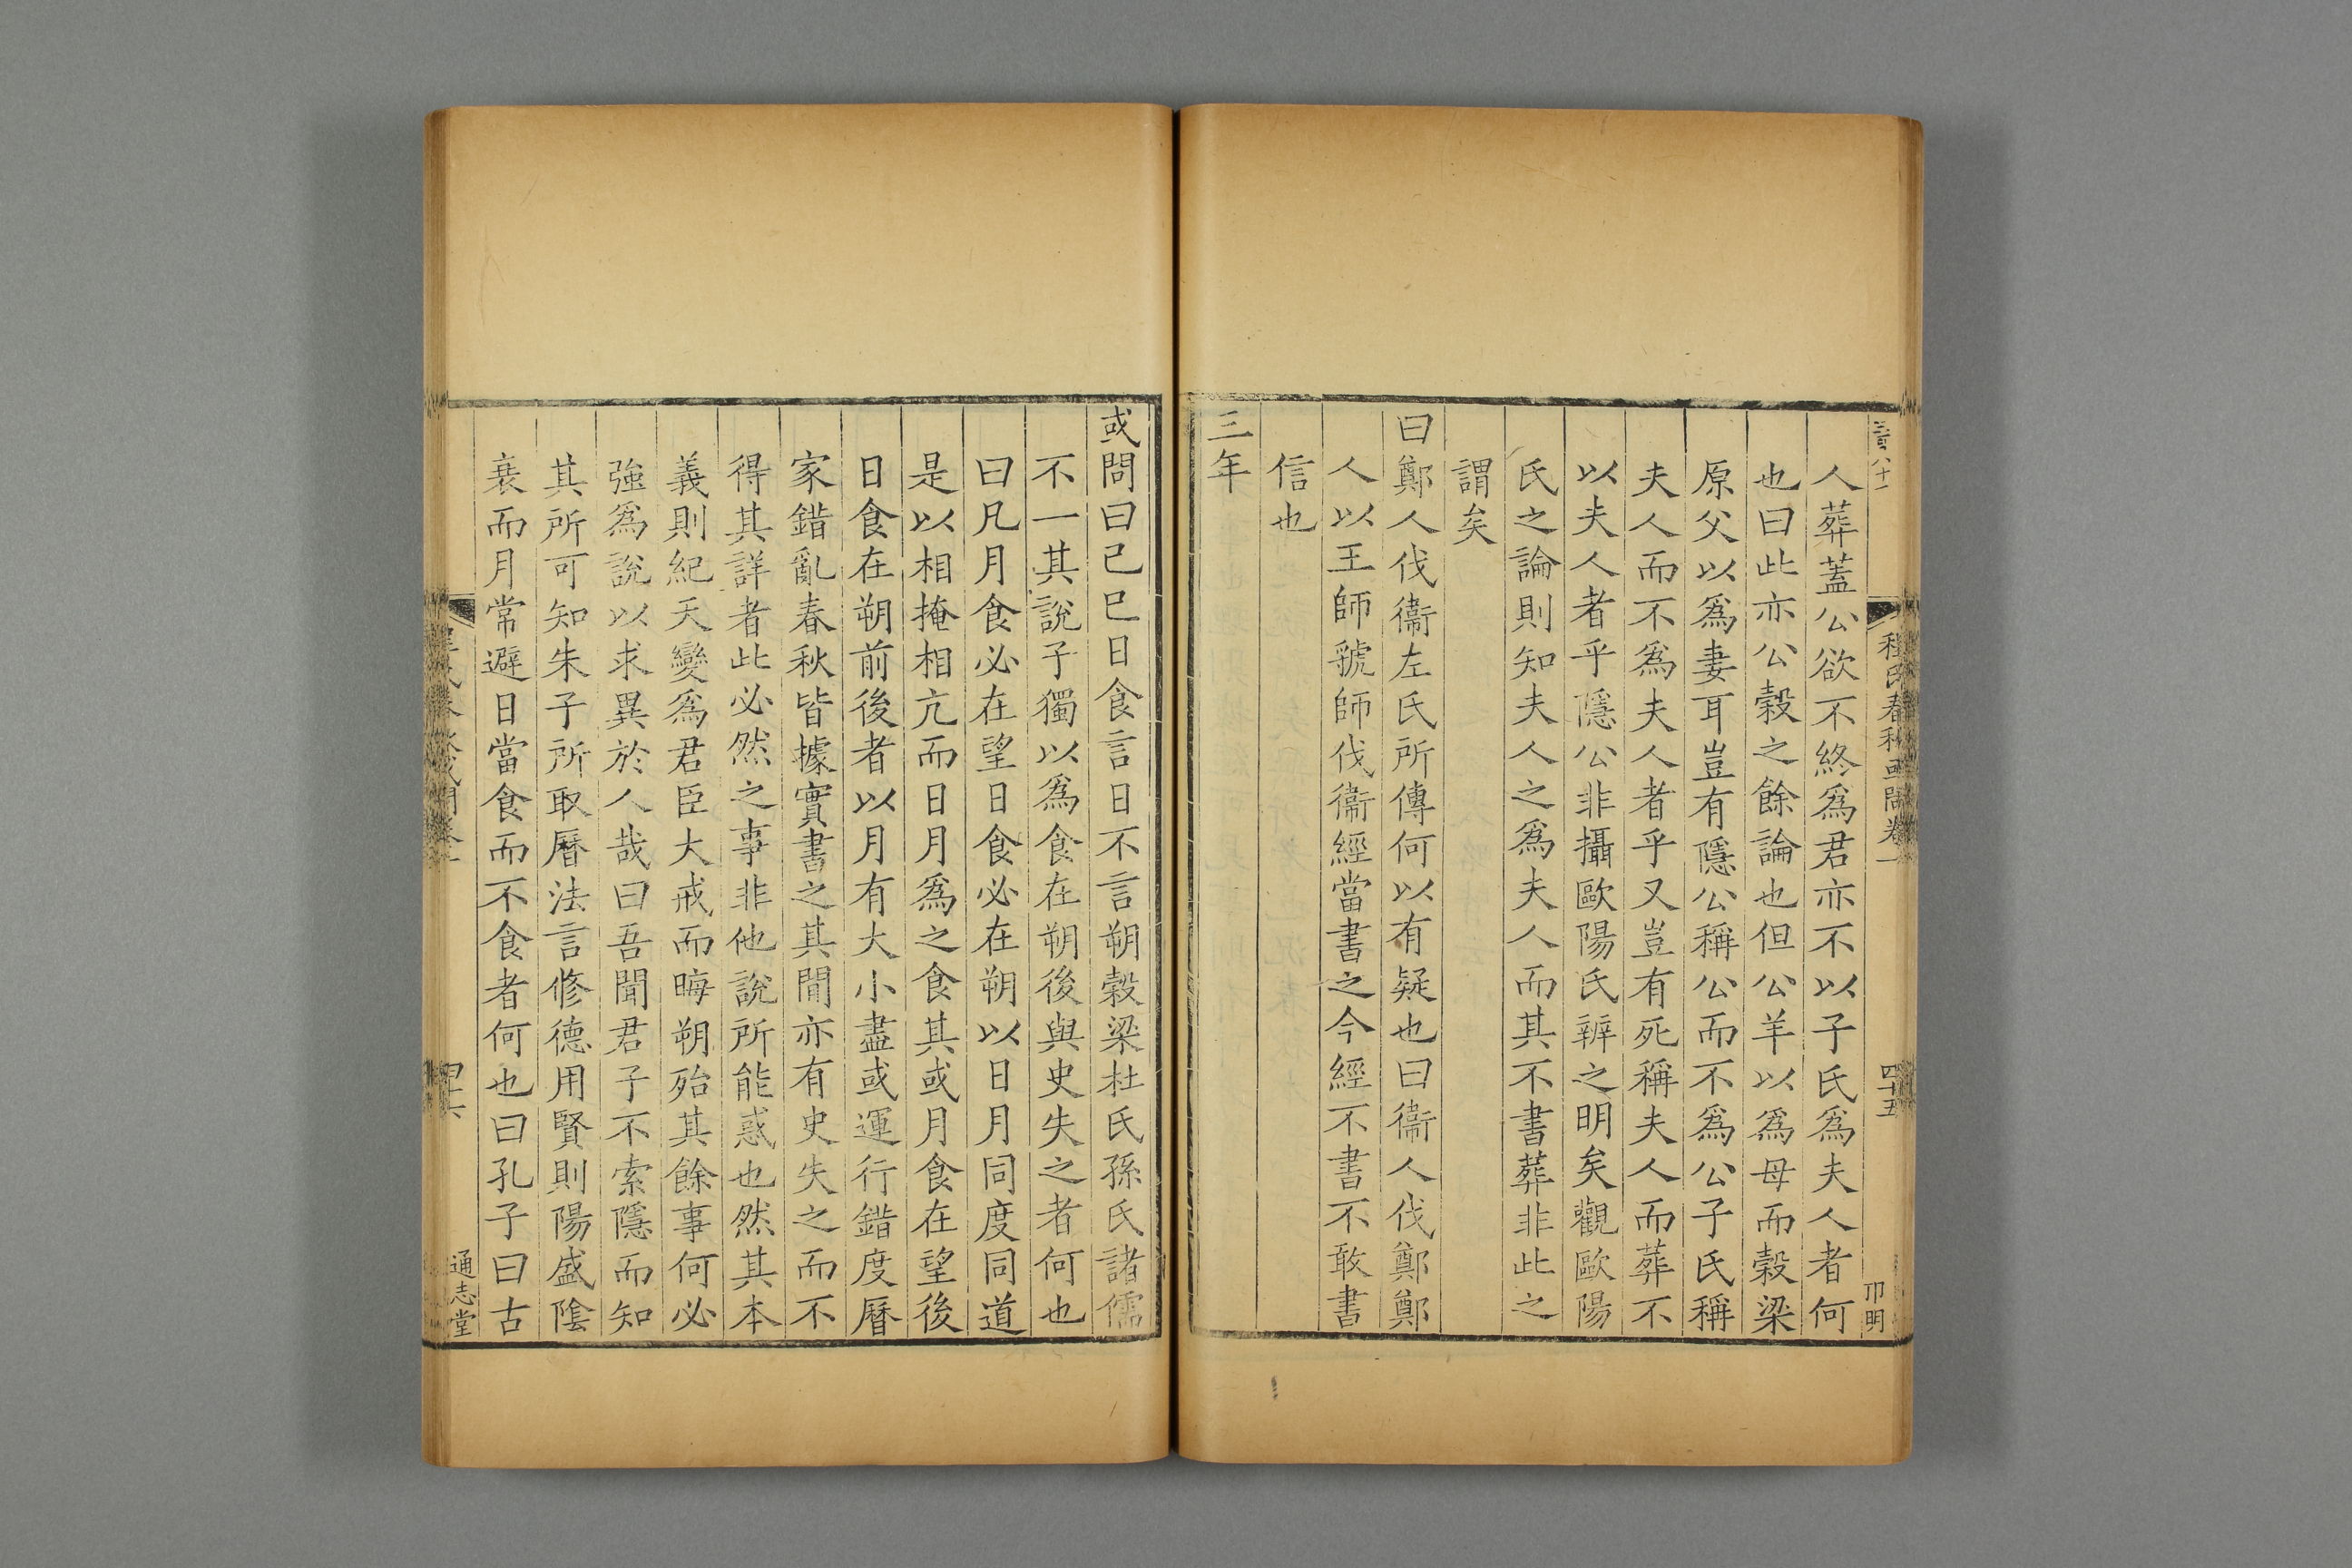 程氏春秋或問卷一
四十五
人葬蓋公欲不終爲君亦不以子氏爲夫人者何
也曰此亦公穀之餘論也但公羊以爲母而穀梁
原父以爲妻耳豈有隱公稱公而不爲公子氏稱
夫人而不爲夫人者乎又豈有死稱夫人而葬不
以夫人者乎隱公非攝歐陽氏辨之明矣觀歐陽
氏之論則知夫人之爲夫人而其不書葬非此之
謂矣
曰鄭人伐衞左氏所傳何以有疑也曰衞人伐鄭鄭
人以王師虢師伐衞經當書之今經不書不敢書
信也
三年
或問曰己巳日食言日不言朔穀梁杜氏孫氏諸儒
不一其說子獨以爲食在朔後與史失之者何也
曰凡月食必在望日食必在朔以日月同度同道
是以相掩相亢而日月爲之食其或月食在望後
日食在朔前後者以月有大小盡或運行錯度曆
家錯亂春秋皆據實書之其閒亦有史失之而不
得其詳者此必然之事非他說所能惑也然其本
義則紀天變爲君臣大戒而晦朔殆其餘事何必
強爲說以求異於人哉曰吾聞君子不索隱而知
其所可知朱子所取曆法言修德用賢則陽盛陰
衰而月常避日當食而不食者何也曰孔子曰古
通志堂